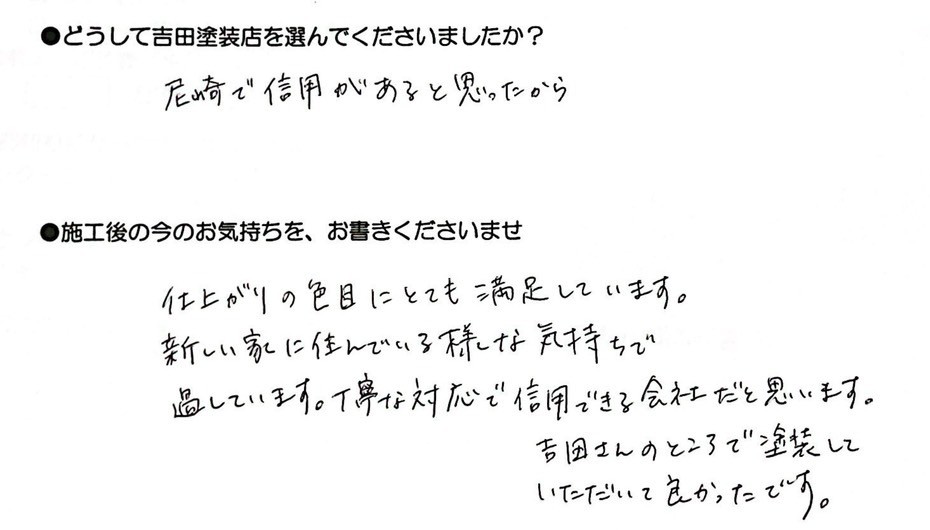 ●どうして吉田塗装店を選んでくださいましたか？
尼崎で信用があると思ったから
●施工後の今のお気持ちを、お書きくださいませ
仕上がりの色目にとても満足しています。
新しい家に住んでいる様な気持ちで
過しています。丁寧な対応で信用できる会社だと思います。
吉田さんのところで塗装して
いただいて良かったです。